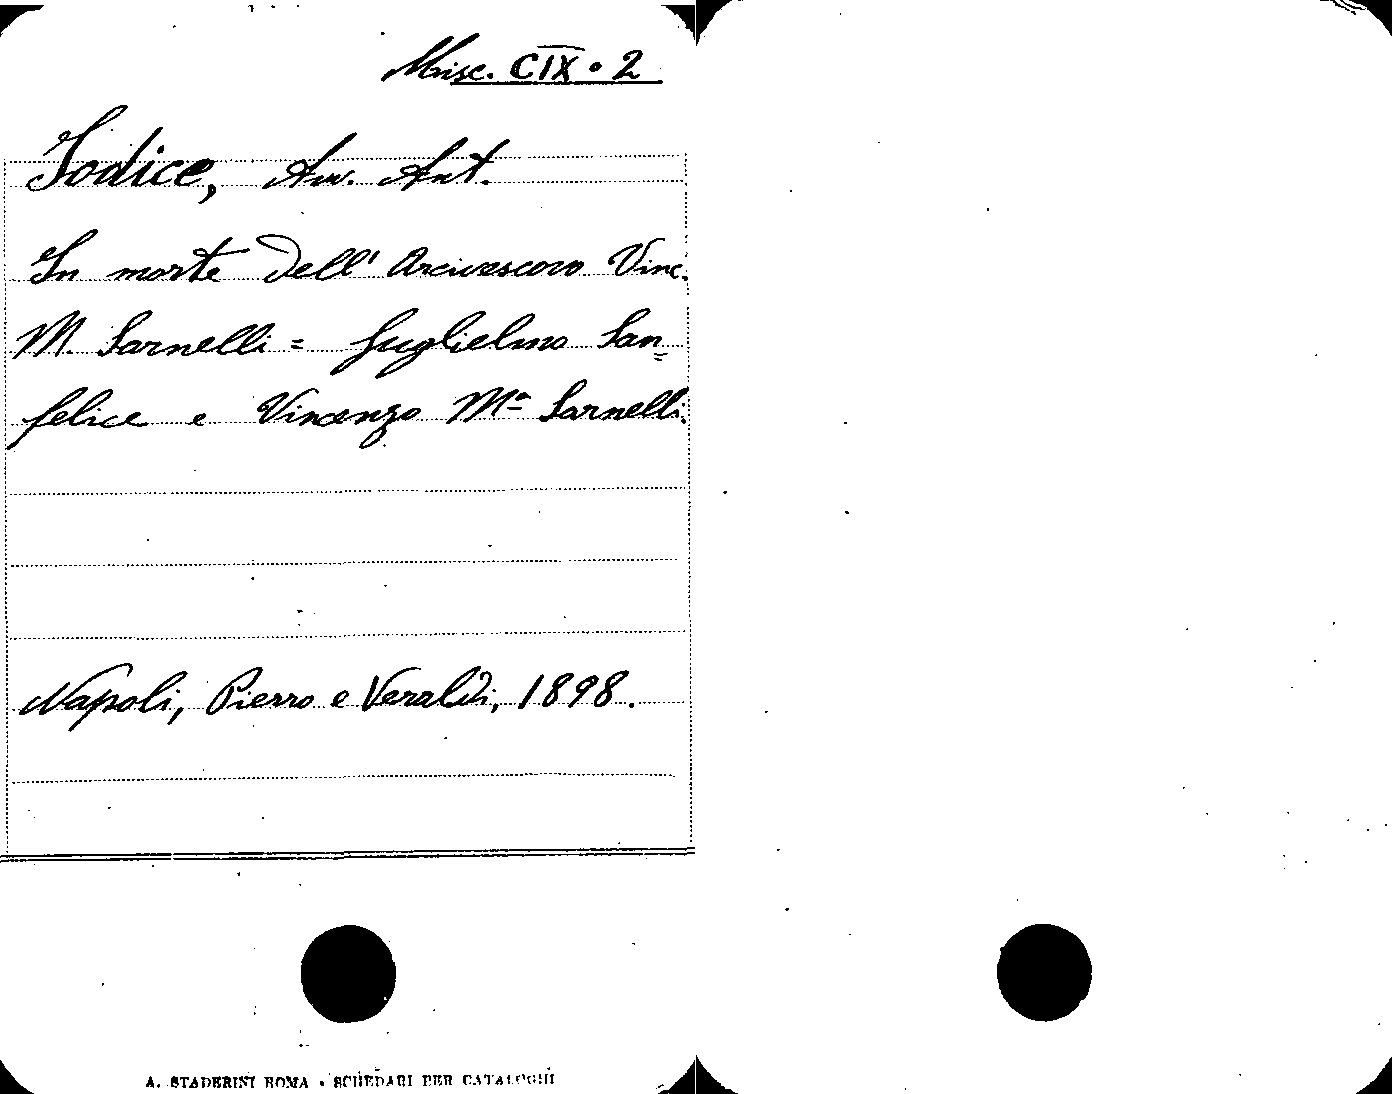 Misc. CIX • 2
Jodice, Avv. Ant.
In morte dell' Arcivescovo Vinc.
M. Sarnelli = Guglielmo San=
felice e Vincenzo Mª Sarnelli.
Napoli, Pierro e Veraldi, 1898.
A. STADERINI ROMA • SCHEDARI PER CATALOGHI